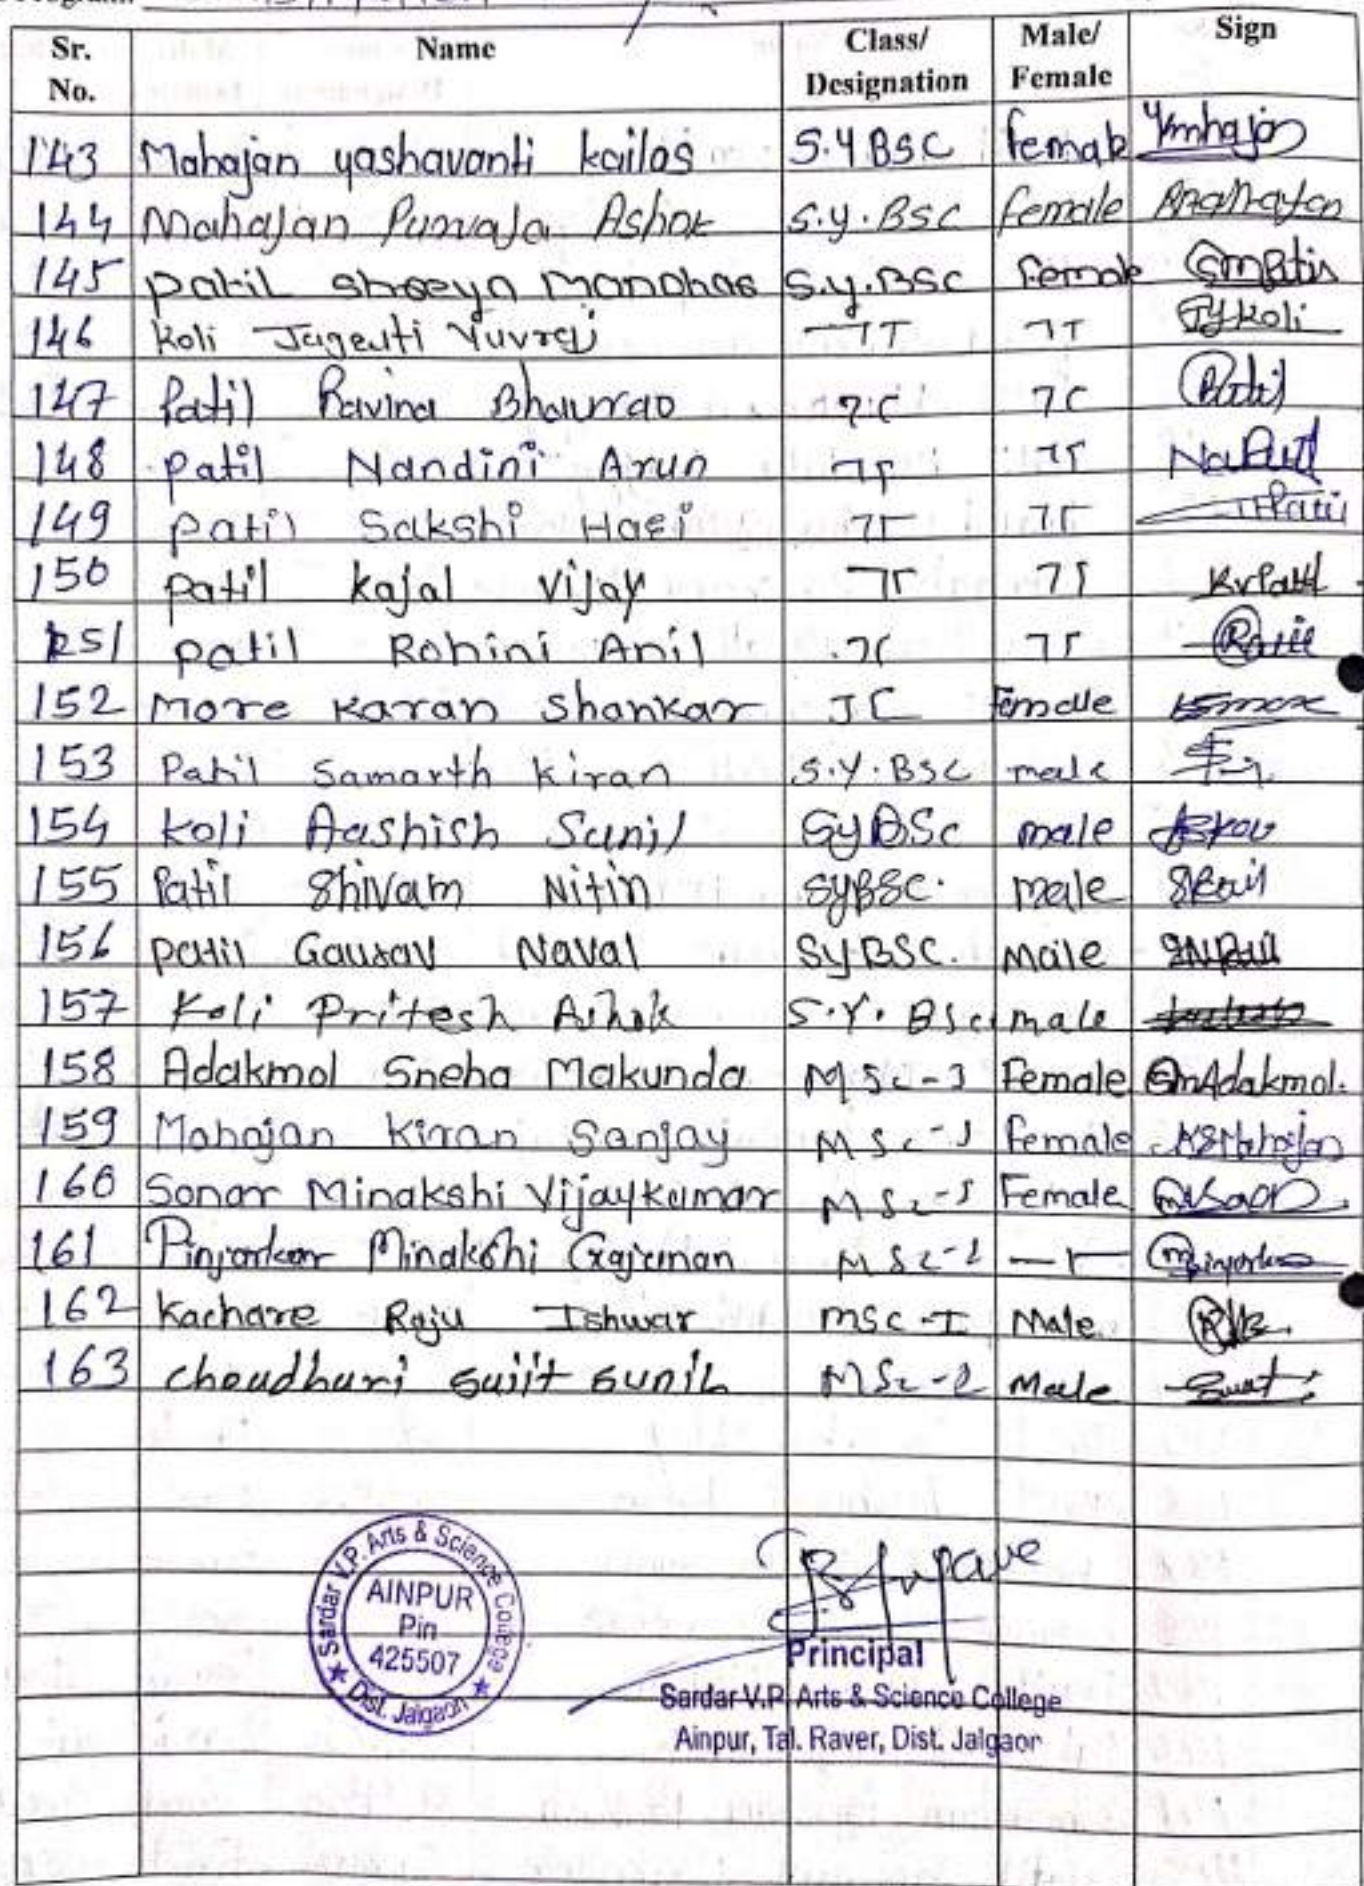 Sr. No. Name Class/ Designation Male/ Female Sign
143 Mahajan yashavanti kailas S.Y BSC female Ymhajan
144 Mahajan Purvaja Ashok S.y.BSC female
145 patil shreeya manohar S.y.BSC female
146 Koli Yuvraj JYKoli
147 Patil Ravina Bhaurao Patil
148 patil Nandini Arun
149 patil Sakshi Hari
150 patil kajal vijay KvPatil
151 patil Rohini Anil
152 more karan shankar Female
153 Patil Samarth kiran S.Y.BSC male
154 koli Aashish Sunil SyBSc male
155 Patil Shivam Nitin SyBSC. male
156 patil Gaurav Naval SyBSC. male
157 Koli Pritesh Ashok S.Y. BSc male
158 Adakmol Sneha Makunda MSc-I Female SmAdakmol.
159 Mahajan Kiran Sanjay MSc-I female KSMahajan
160 Sonar Minakshi Vijaykumar MSc-I Female
161 Pinjarkar Minakshi Gajanan MSc-I
162 Kachare Raju Ishwar MSC-I Male
163 choudhari sujit sunil MSc- Male
Sardar V.P. Arts & Science College
AINPUR
Pin
425507
Dist. Jalgaon
Principal
Sardar V.P. Arts & Science College
Ainpur, Tal. Raver, Dist. Jalgaon